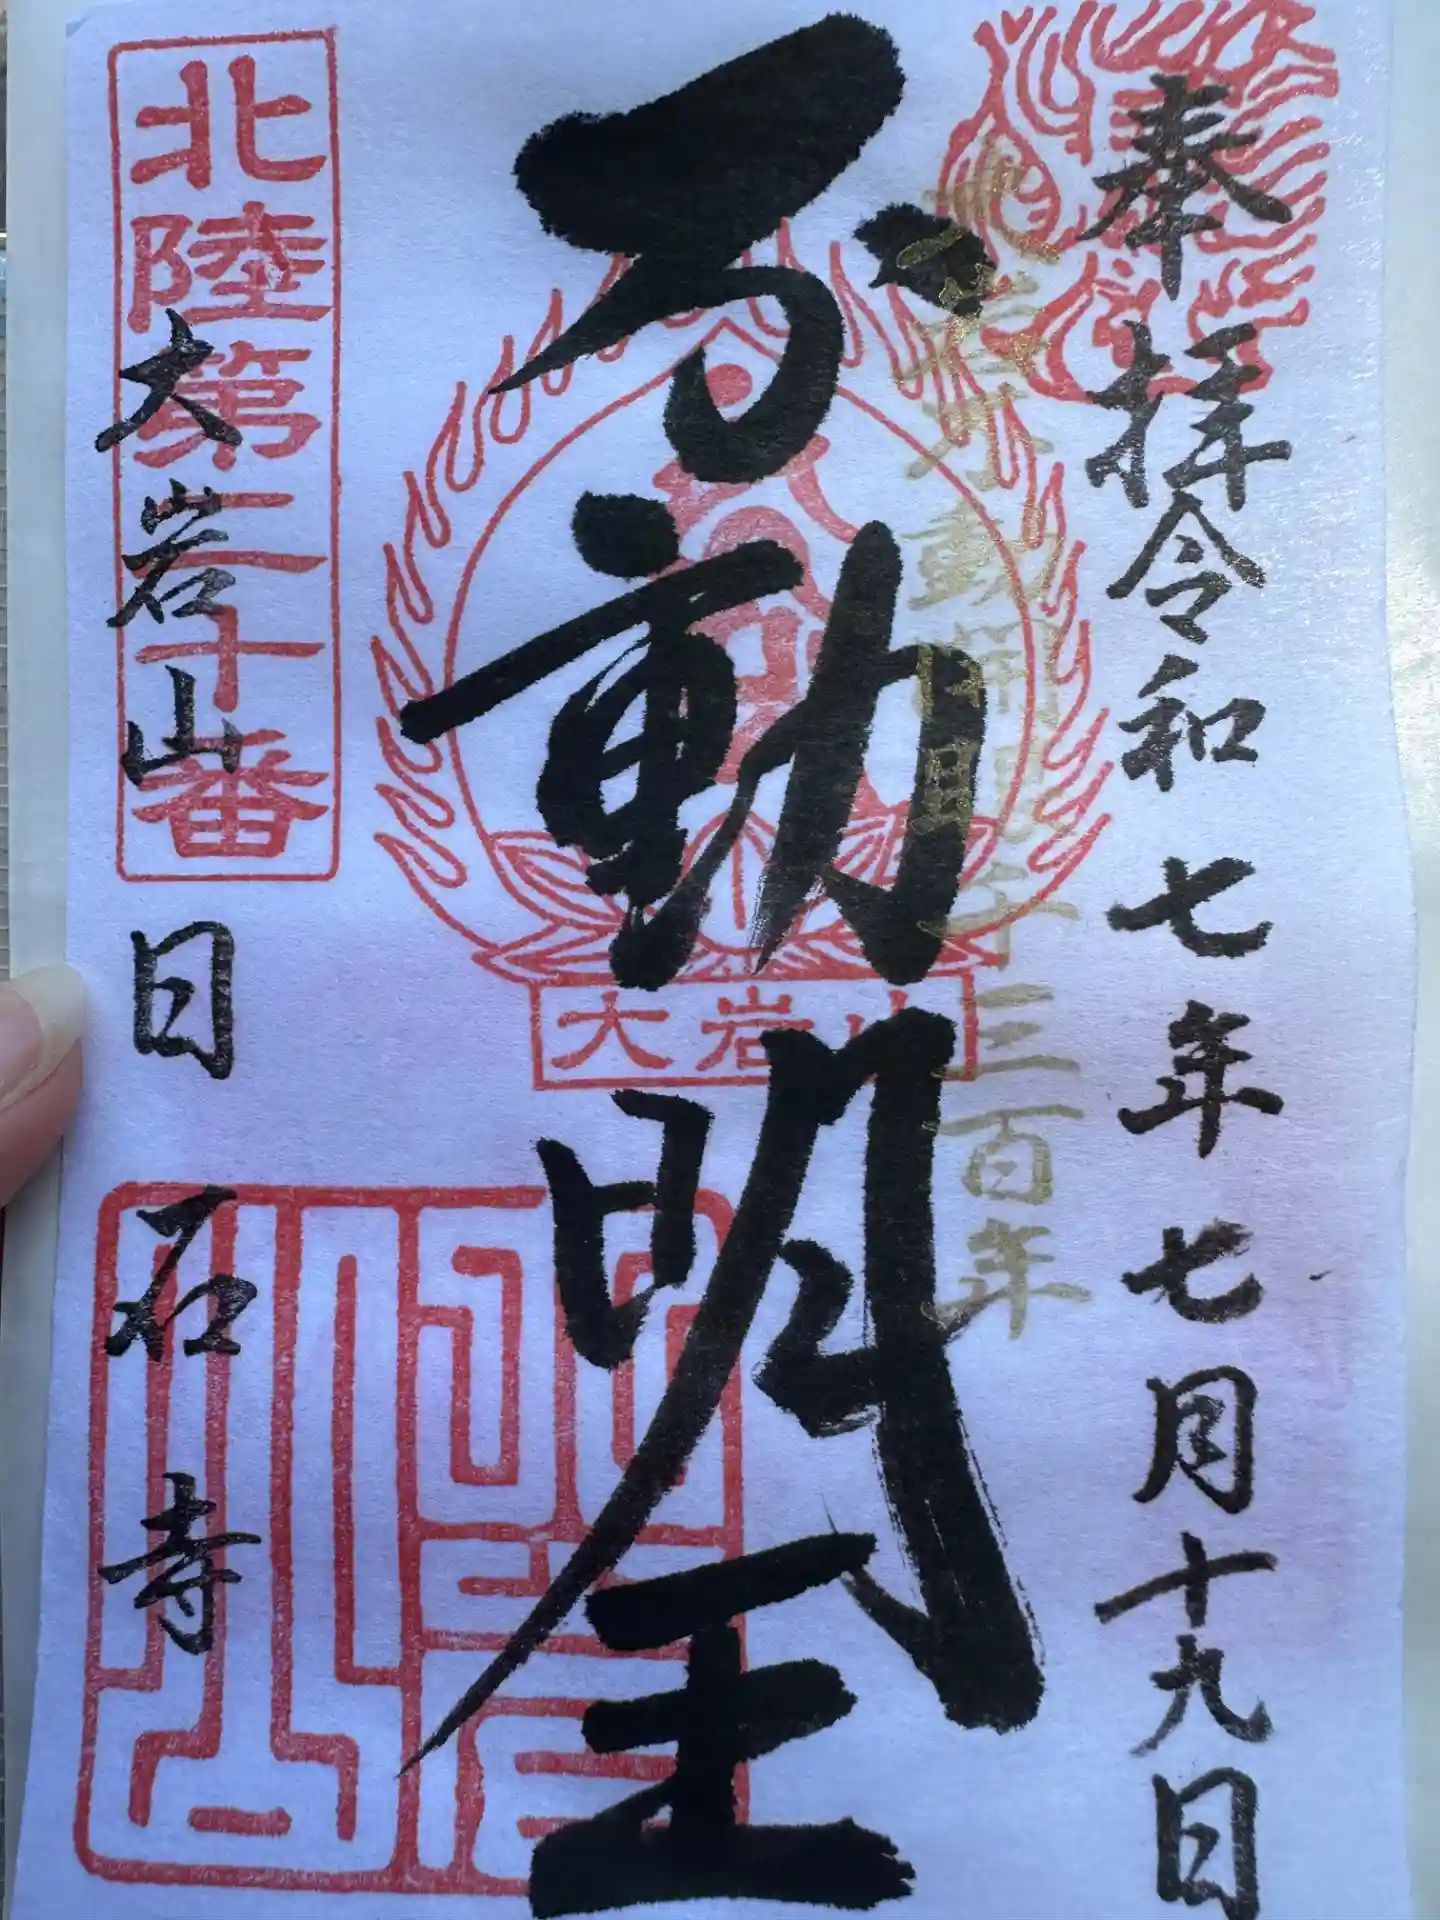 奉拝 令和七年七月十九日
大岩不動開眼千三百年
不動明王
大岩山
北陸第二十番
大岩山 日石寺